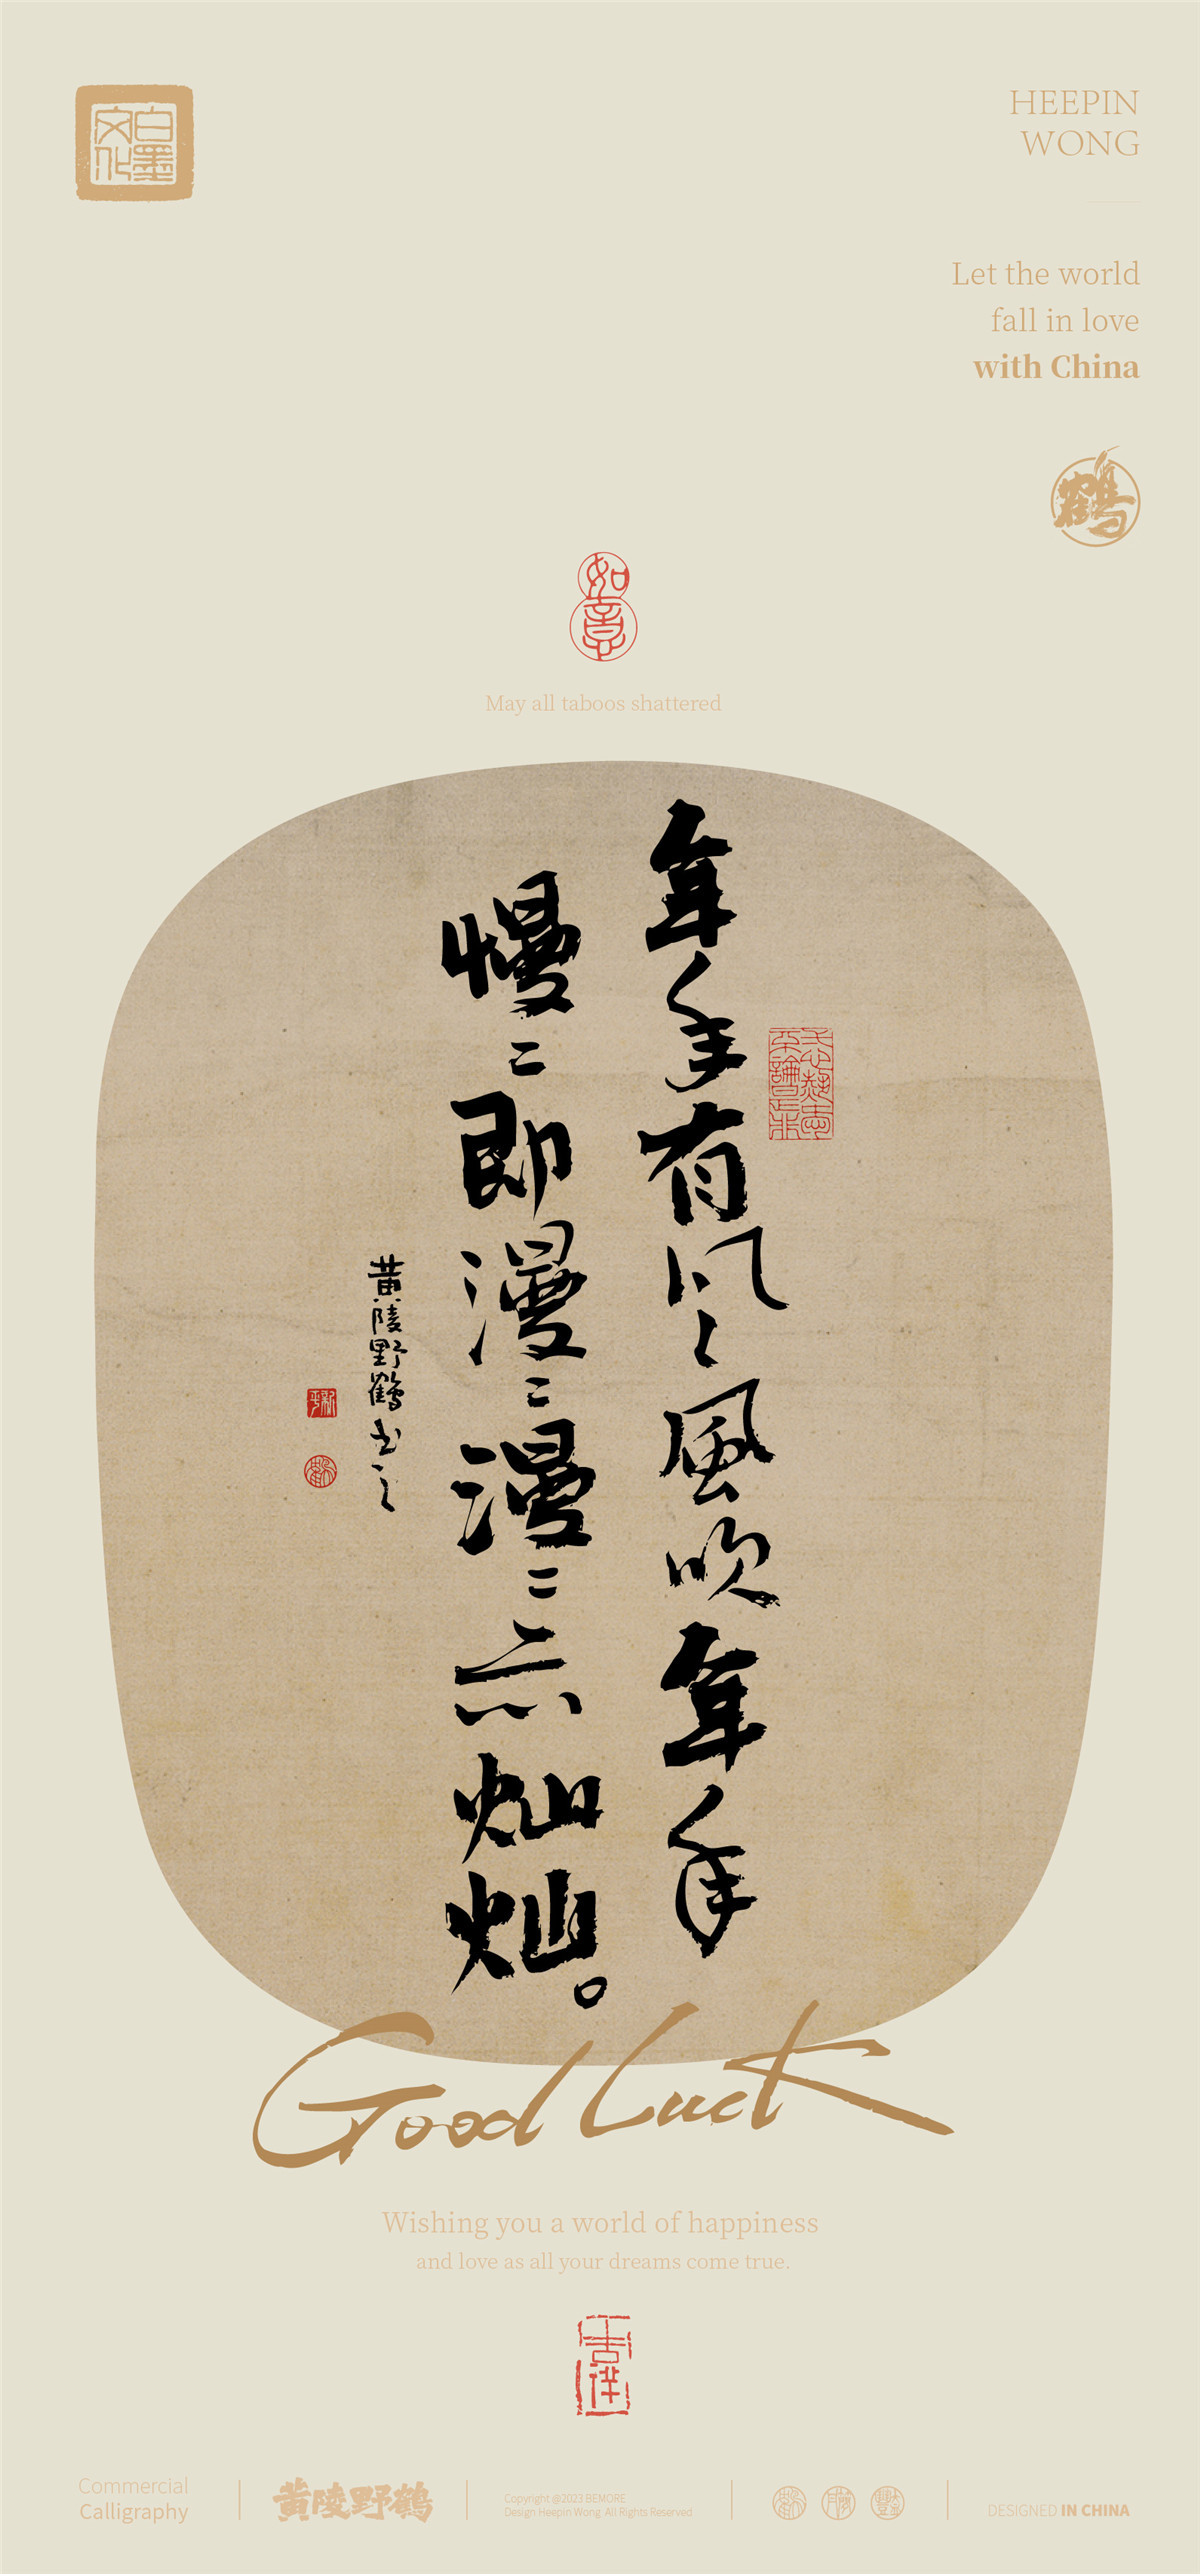 白墨文化
HEEPIN
WONG
Let the world
fall in love
with China
鹤
如意
May all taboos shattered
年年有风、風吹年年
慢〻即漫〻漫〻亦灿灿。
黄陵野鹤书之
Good Luck
Wishing you a world of happiness
and love as all your dreams come true.
吉祥
Commercial
Calligraphy
黄陵野鹤
Copyright @2023 BEMORE
Design Heepin Wong. All Rights Reserved
DESIGNED IN CHINA